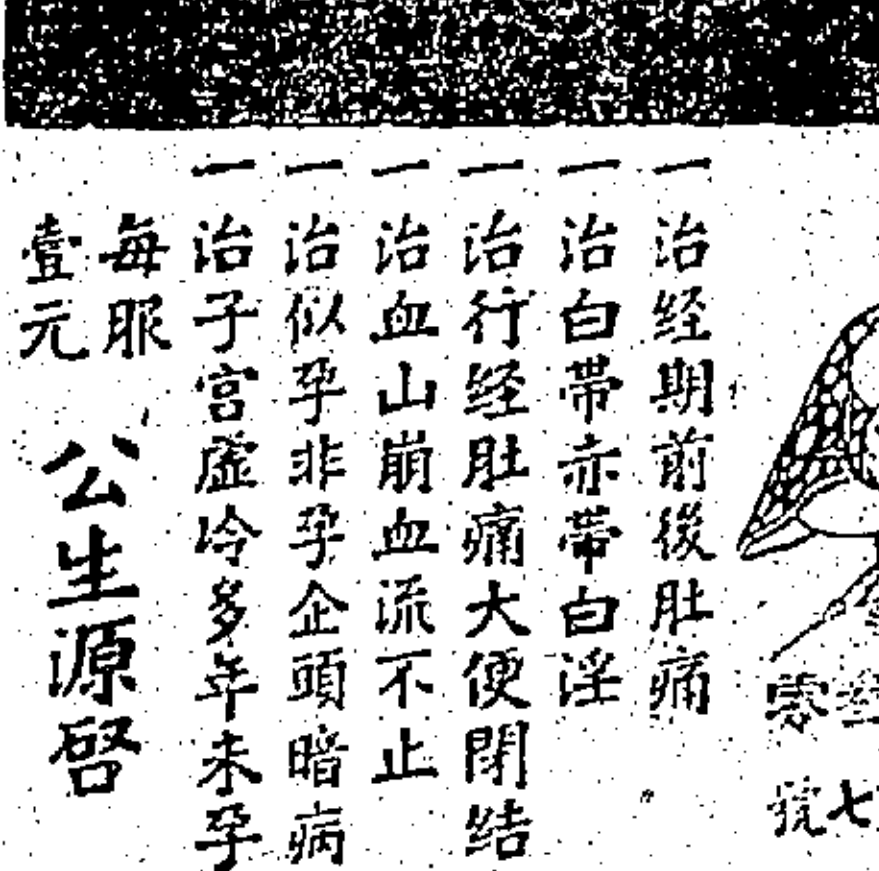 零號
七
一治经期前後肚痛
一治白帶赤帶白淫
一治行经肚痛大便閉结
一治血山崩血流不止
一治似孕非孕企頭暗病
一治子宮虛冷多年未孕
每服
壹元
公生源啓